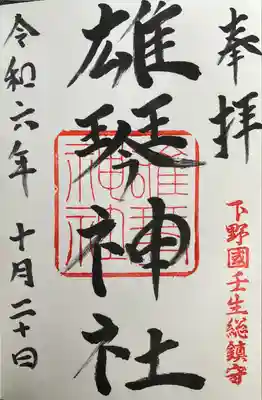 奉拝
下野國壬生総鎮守
雄琴神社
令和六年 十月二十日